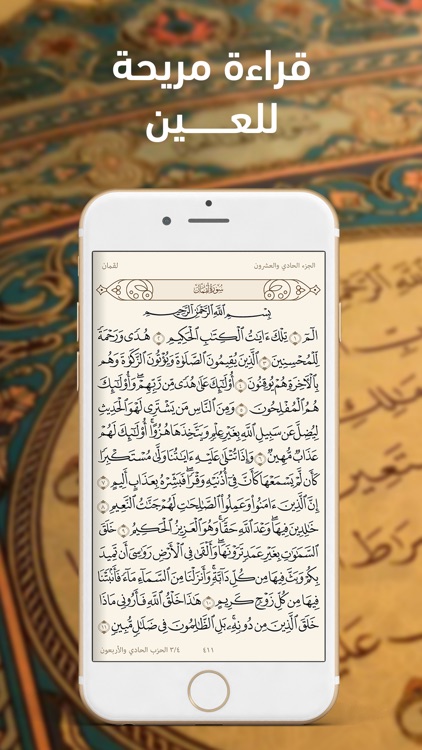 قراءة مريحة
للعـــين
الجزء الحادي والعشرون
لقمان
سُورَةُ لُقۡمَانَ
بِسۡمِ ٱللَّهِ ٱلرَّحۡمَٰنِ ٱلرَّحِيمِ
الٓمٓ ١ تِلۡكَ ءَايَٰتُ ٱلۡكِتَٰبِ ٱلۡحَكِيمِ ٢ هُدٗى وَرَحۡمَةٗ
لِّلۡمُحۡسِنِينَ ٣ ٱلَّذِينَ يُقِيمُونَ ٱلصَّلَوٰةَ وَيُؤۡتُونَ ٱلزَّكَوٰةَ وَهُم
بِٱلۡأٓخِرَةِ هُمۡ يُوقِنُونَ ٤ أُوْلَٰٓئِكَ عَلَىٰ هُدٗى مِّن رَّبِّهِمۡۖ وَأُوْلَٰٓئِكَ
هُمُ ٱلۡمُفۡلِحُونَ ٥ وَمِنَ ٱلنَّاسِ مَن يَشۡتَرِي لَهۡوَ ٱلۡحَدِيثِ
لِيُضِلَّ عَن سَبِيلِ ٱللَّهِ بِغَيۡرِ عِلۡمٖ وَيَتَّخِذَهَا هُزُوًاۚ أُوْلَٰٓئِكَ لَهُمۡ
عَذَابٞ مُّهِينٞ ٦ وَإِذَا تُتۡلَىٰ عَلَيۡهِ ءَايَٰتُنَا وَلَّىٰ مُسۡتَكۡبِرٗا
كَأَن لَّمۡ يَسۡمَعۡهَا كَأَنَّ فِيٓ أُذُنَيۡهِ وَقۡرٗاۖ فَبَشِّرۡهُ بِعَذَابٍ أَلِيمٍ ٧
إِنَّ ٱلَّذِينَ ءَامَنُواْ وَعَمِلُواْ ٱلصَّٰلِحَٰتِ لَهُمۡ جَنَّٰتُ ٱلنَّعِيمِ ٨
خَٰلِدِينَ فِيهَاۖ وَعۡدَ ٱللَّهِ حَقّٗاۚ وَهُوَ ٱلۡعَزِيزُ ٱلۡحَكِيمُ ٩ خَلَقَ
ٱلسَّمَٰوَٰتِ بِغَيۡرِ عَمَدٖ تَرَوۡنَهَاۖ وَأَلۡقَىٰ فِي ٱلۡأَرۡضِ رَوَٰسِيَ أَن تَمِيدَ
بِكُمۡ وَبَثَّ فِيهَا مِن كُلِّ دَآبَّةٖۚ وَأَنزَلۡنَا مِنَ ٱلسَّمَآءِ مَآءٗ فَأَنۢبَتۡنَا
فِيهَا مِن كُلِّ زَوۡجٖ كَرِيمٍ ١٠ هَٰذَا خَلۡقُ ٱللَّهِ فَأَرُونِي مَاذَا
خَلَقَ ٱلَّذِينَ مِن دُونِهِۦۚ بَلِ ٱلظَّٰلِمُونَ فِي ضَلَٰلٖ مُّبِينٖ ١١
٤١١
٣/٤ الحزب الحادي والأربعون